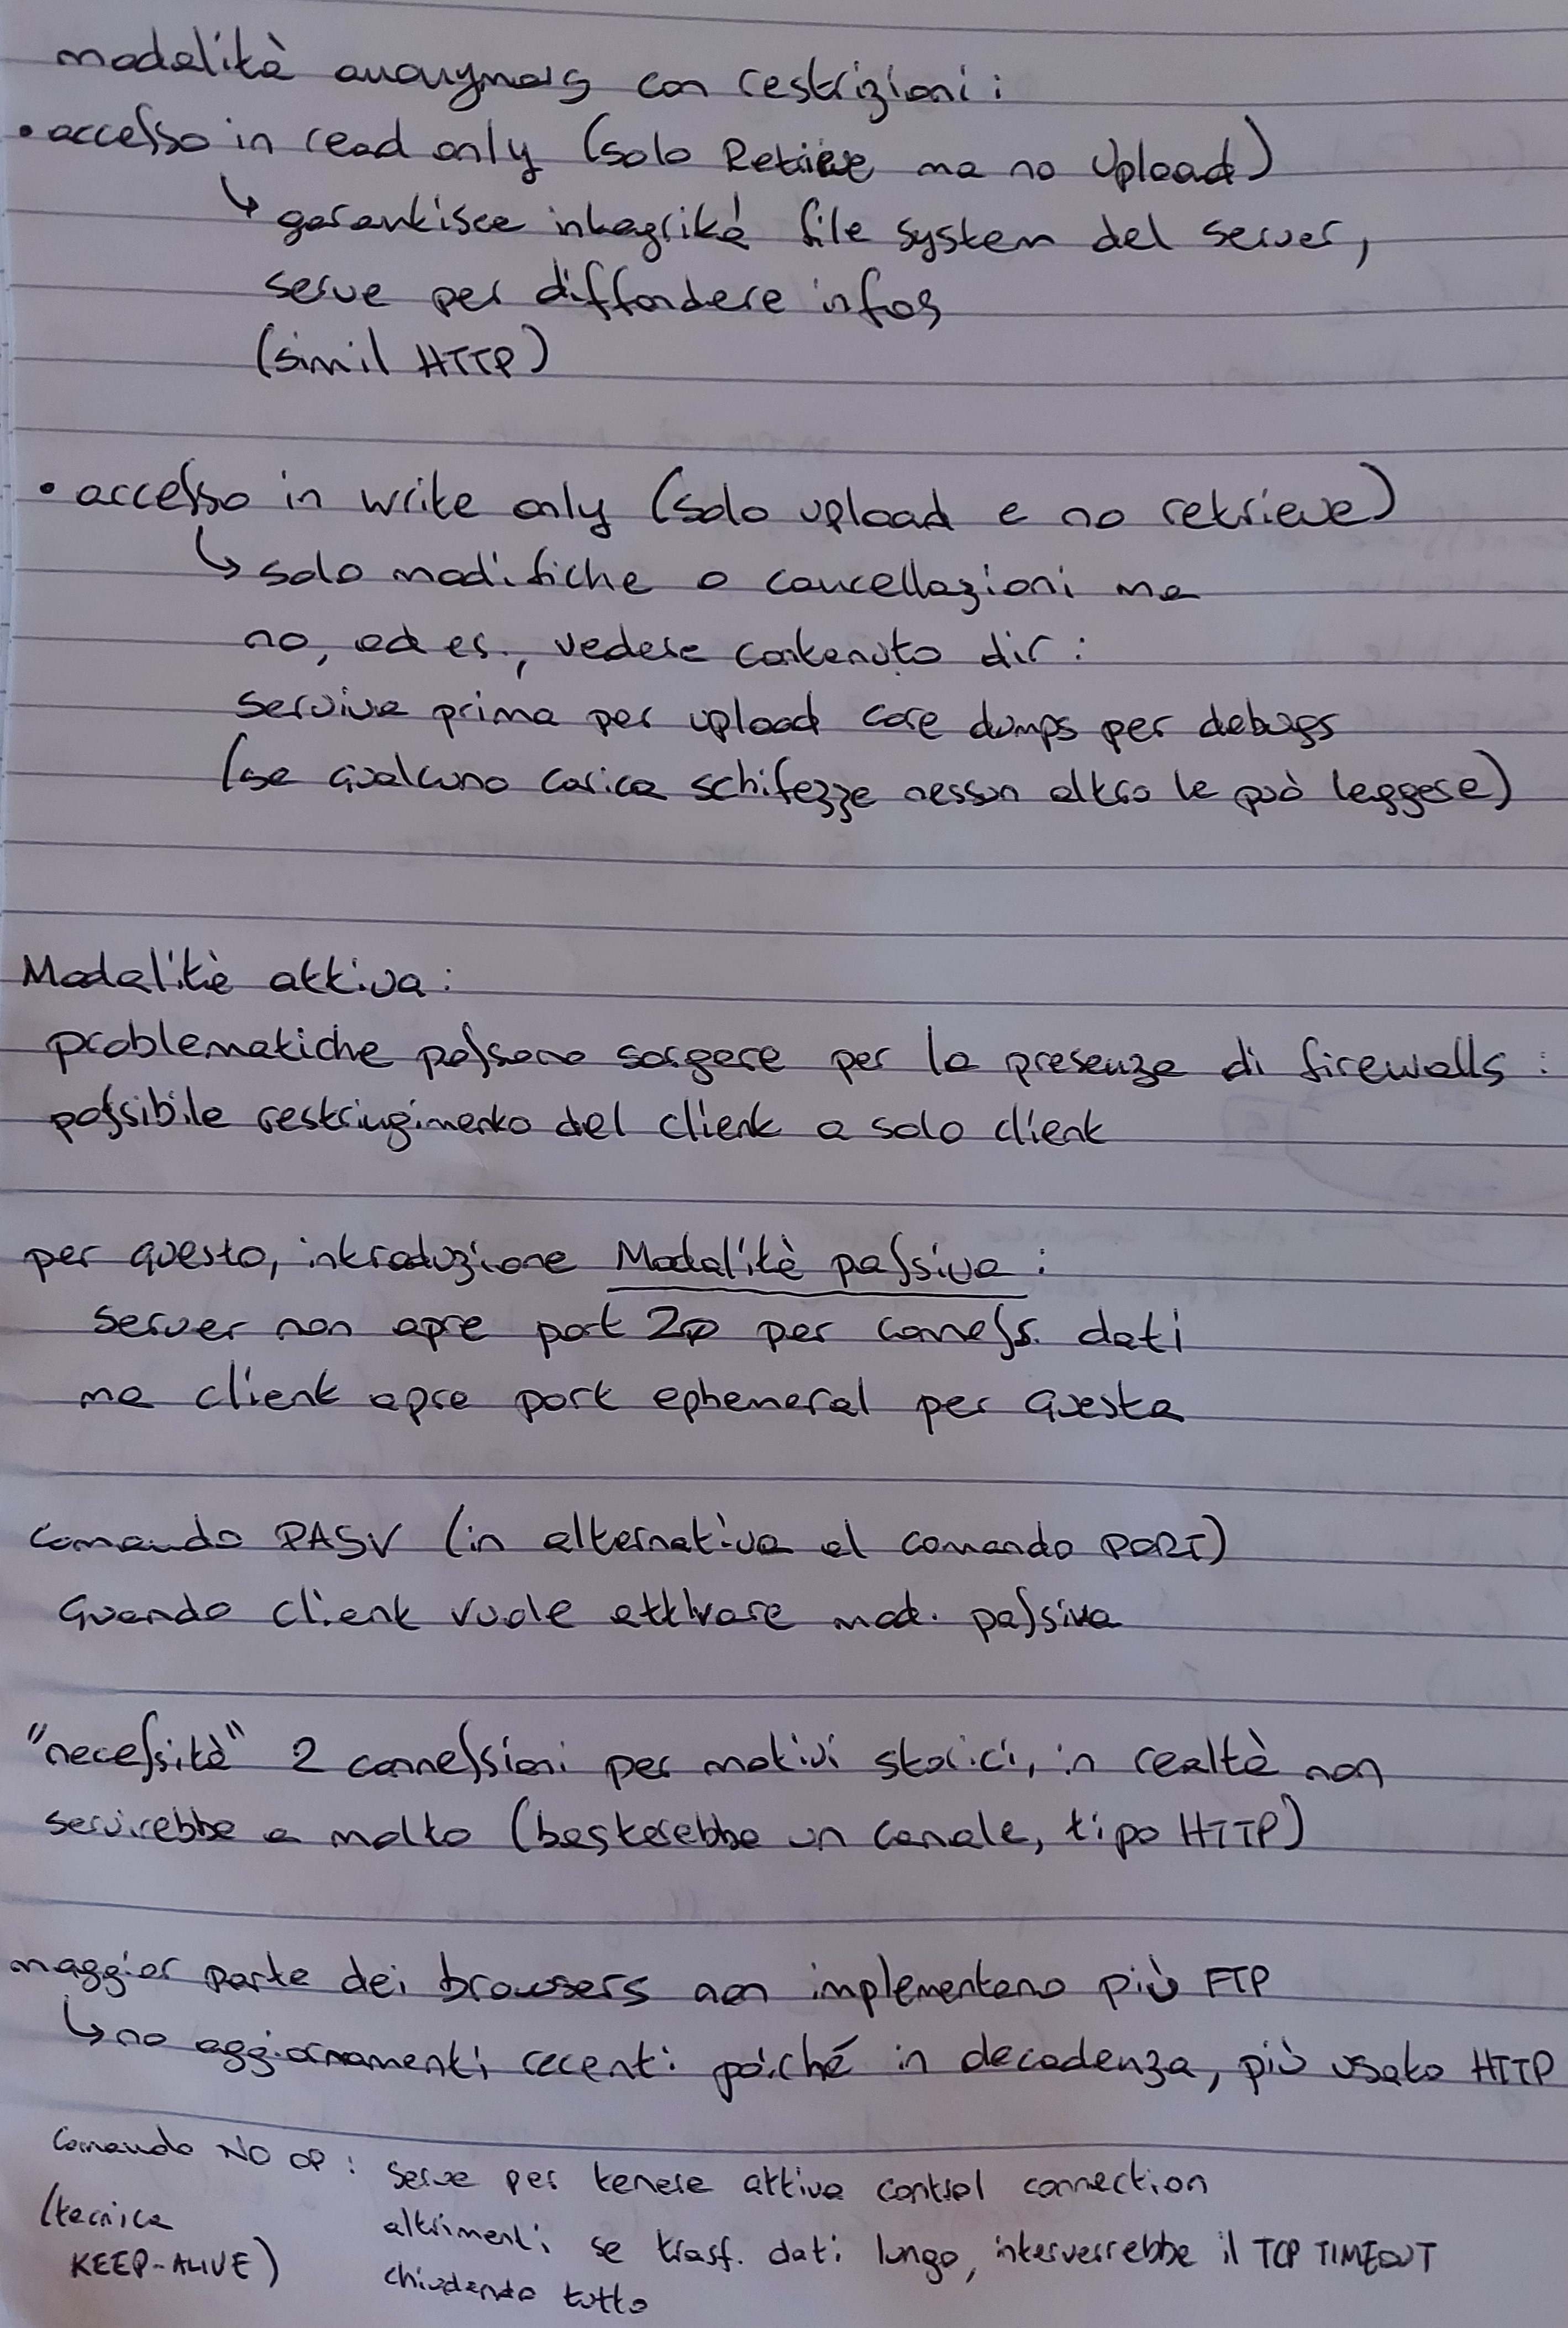 modalità anonymous con restrizioni:
• accesso in read only (solo Retrieve ma no Upload)
↳ garantisce integrità file system del server,
serve per diffondere infos
(simil HTTP)
• accesso in write only (solo upload e no retrieve)
↳ solo modifiche o cancellazioni ma
no, ad es., vedere contenuto dir:
serviva prima per upload core dumps per debugs
(se qualcuno carica schifezze nessun altro le può leggere)
Modalità attiva:
problematiche possono sorgere per la presenza di firewalls:
possibile restringimento del client a solo client
per questo, introduzione Modalità passiva:
server non apre port 20 per conness. dati
ma client apre port ephemeral per questa
comando PASV (in alternativa al comando PORT)
quando client vuole attivare mod. passiva
"necessità" 2 connessioni per motivi storici, in realtà non
servirebbe a molto (basterebbe un canale, tipo HTTP)
maggior parte dei browsers non implementano più FTP
↳ no aggiornamenti recenti poiché in decadenza, più usato HTTP
Comando NO OP: serve per tenere attiva control connection
(tecnica altrimenti se trasf. dati lungo, interverrebbe il TCP TIMEOUT
KEEP-ALIVE) chiudendo tutto